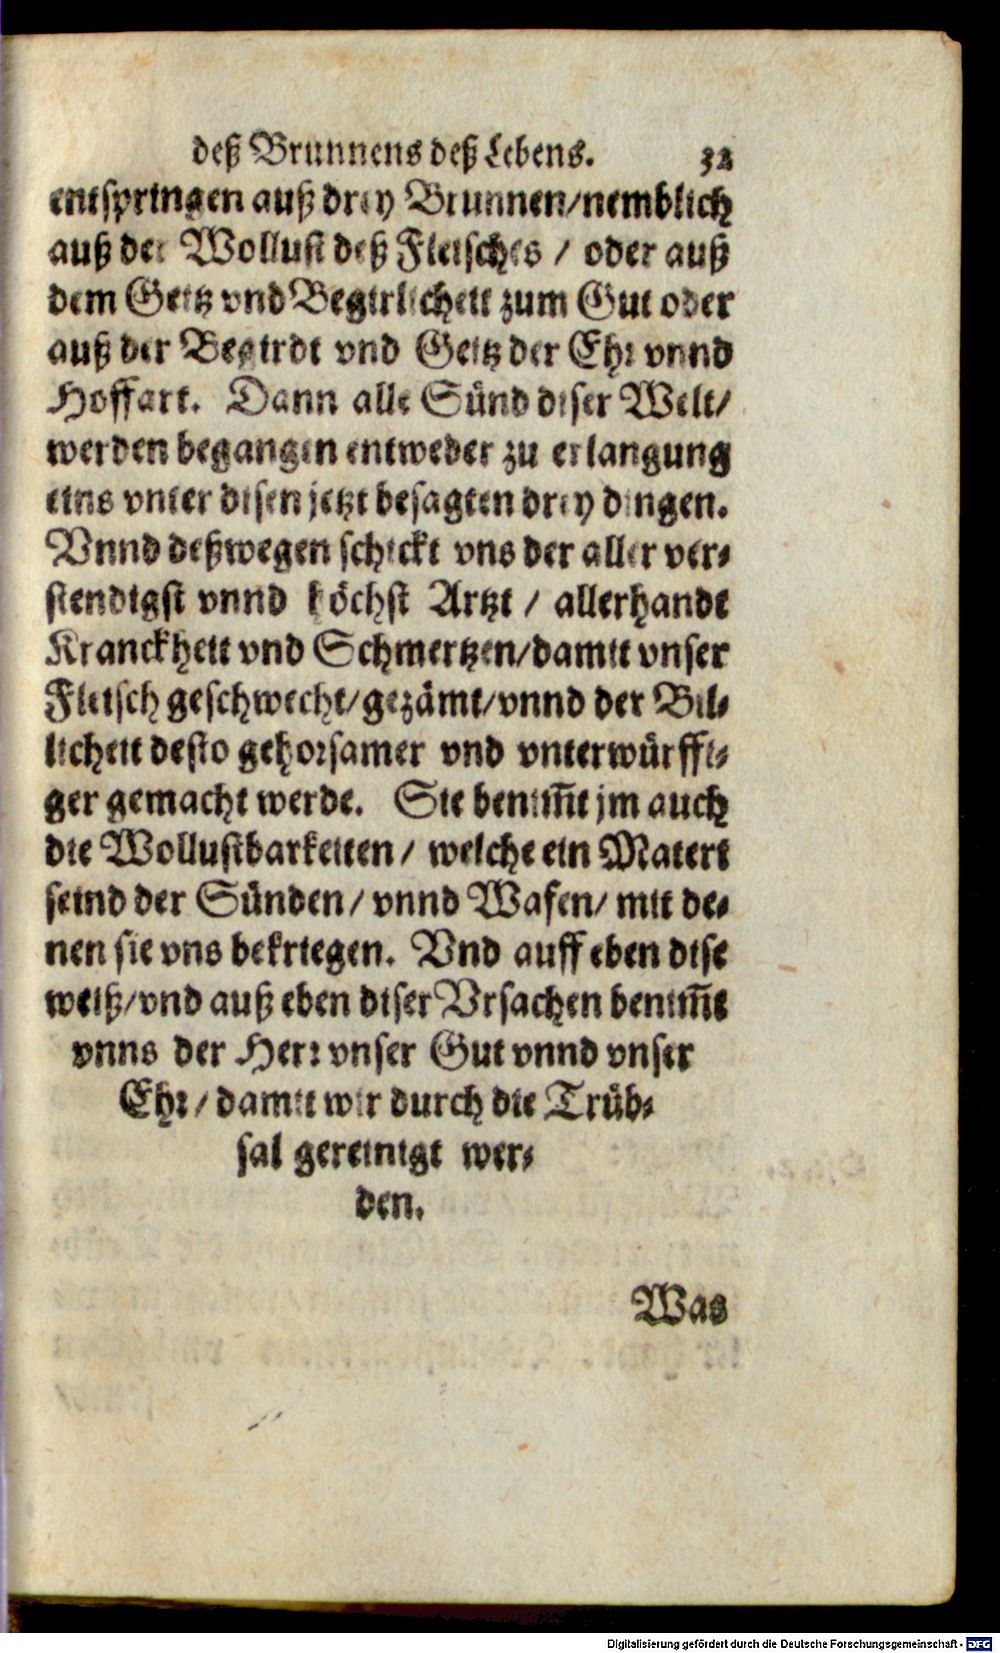 deß Brunnens deß Lebens. 32
entspringen auß drey Brunnen/nemblich
auß der Wollust deß Fleisches / oder auß
dem Geitz vnd Begirlicheit zum Gut oder
auß der Begirdt vnd Geitz der Ehr vnnd
Hoffart. Dann alle Sünd diser Welt/
werden begangen entweder zu erlangung
eins vnter disen jetzt besagten drey dingen.
Vnnd deßwegen schickt vns der aller ver-
stendigst vnnd höchst Artzt / allerhande
Kranckheit vnd Schmertzen/damit vnser
Fleisch geschwecht/gezämt/vnnd der Bil-
licheit desto gehorsamer vnd vnterwürffi-
ger gemacht werde. Sie benim̃t jm auch
die Wollustbarkeiten/ welche ein Materi
seind der Sünden/ vnnd Wafen/ mit de-
nen sie vns bekriegen. Vnd auff eben dise
weiß/vnd auß eben diser Vrsachen benim̃t
vnns der Herr vnser Gut vnnd vnser
Ehr/damit wir durch die Trüb-
sal gereinigt wer-
den.
Was
Digitalisierung gefördert durch die Deutsche Forschungsgemeinschaft - DFG